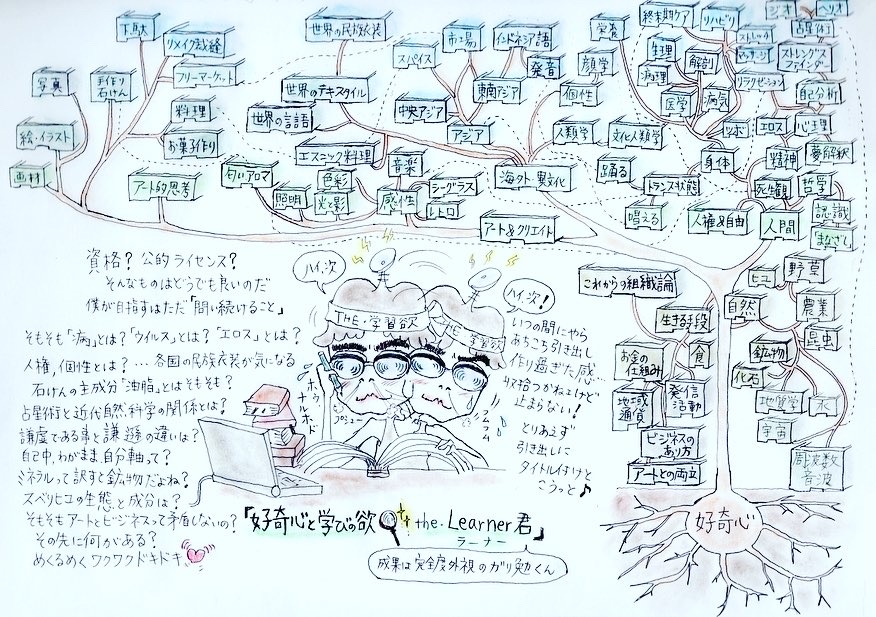 下駄
世界の民族衣装
栄養
終末期ケア
リハビリ
ジオ
ヘリオ
リメイク裁縫
市場
インドネシア語
占星術
スパイス
発音
顔学
生理
解剖
ストレッチ
ストレングス
ファインダー
マッサージ
写真
手作り
石けん
フリーマーケット
世界のテキスタイル
東南アジア
個性
病理
リラクゼーション
自己分析
料理
世界の言語
中央アジア
医学
病気
エロス
心理
絵・イラスト
お菓子作り
アジア
人類学
文化人類学
エスニック料理
音楽
身体
精神
夢解釈
画材
アート的思考
匂いアロマ
色彩
シーグラス
海外・異文化
踊る
トランス状態
死生観
哲学
照明
光と影
感性
レトロ
唱える
人権&自由
人間
認識
アート&クリエイト
「まなざし」
資格? 公的ライセンス?
そんなものはどうでも良いのだ
僕が目指すはただ「問い続けること」
ハイ、次
ハイ、次!
THE・学習欲
THE・学習欲
これからの組織論
ヒユ
野草
生きる手段
自然
農業
昆虫
お金の
仕組み
食
鉱物
化石
地域
通貨
発信
活動
地質学
水
ビジネスの
あり方
宇宙
アートとの両立
周波数
音波
好奇心
そもそも「病」とは?「ウイルス」とは?「エロス」とは?
人権、個性とは? …各国の民族衣装が気になる
石けんの主成分「油脂」とはそもそも?
占星術と近代自然科学の関係とは?
謙虚である事と謙遜の違いは?
自己中、わがまま、自分軸って?
ミネラルって訳すと鉱物だよね?
スベリヒユの生態と成分は?
そもそもアートとビジネスって矛盾しないの?
その先に何がある?
めくるめくワクワクドキドキ
ホウ
ナルホド
フムフム
いつの間にやら
あちこち引き出し
作り過ぎた感
収拾つかねェけど
止まらない!
とりあえず
引き出しに
タイトル付けと
こうっと♪
「好奇心と学びの欲 the・Learner君」
ラーナー
成果は完全度外視のガリ勉くん